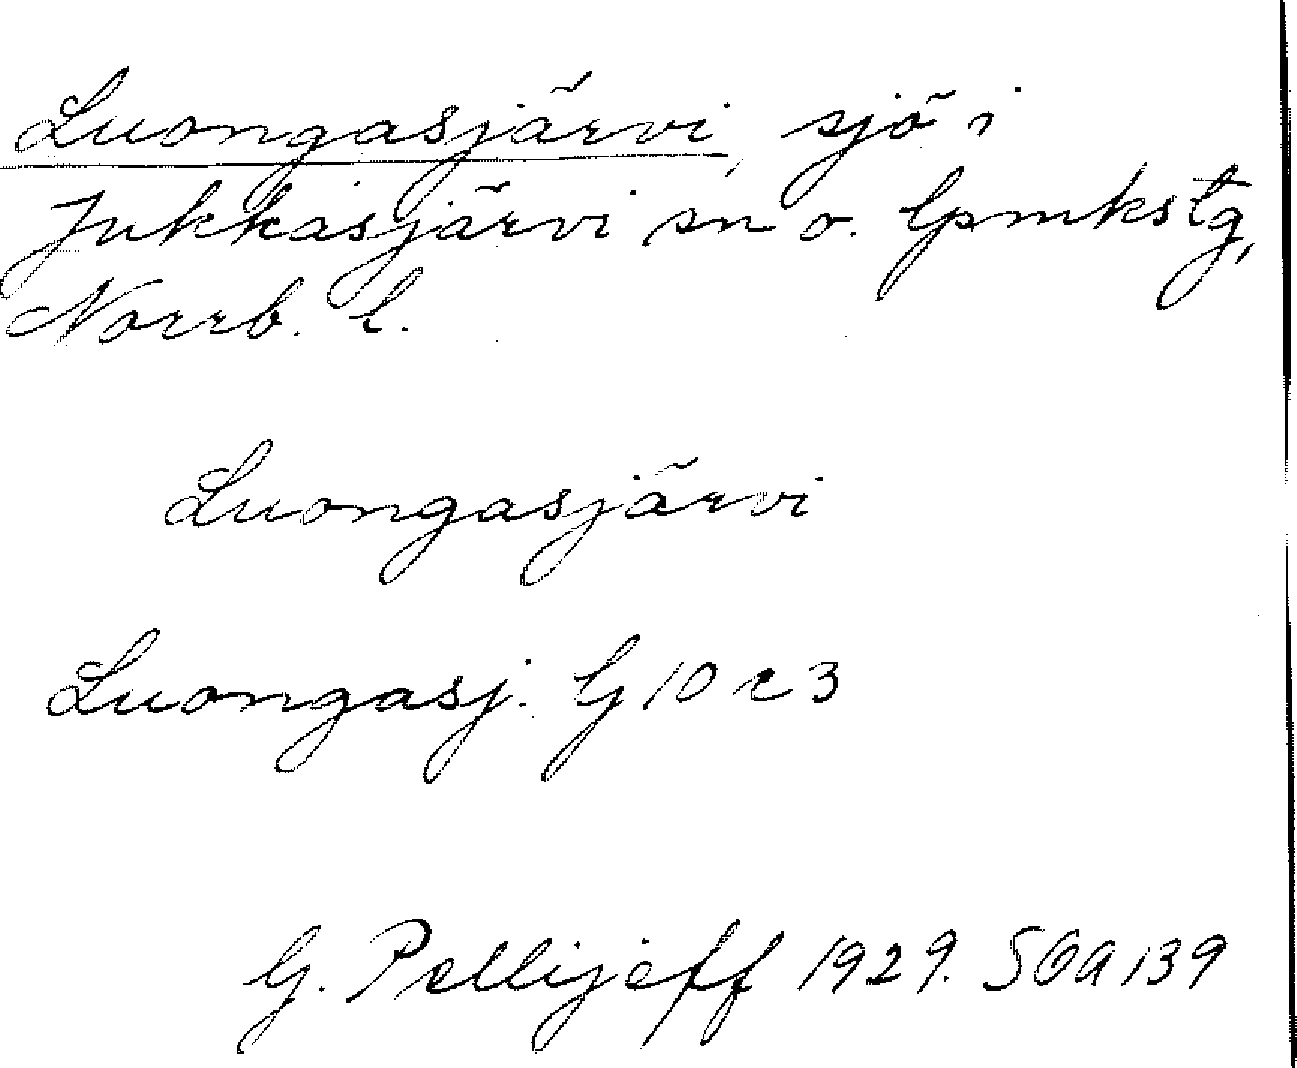 Luongasjärvi, sjö i
Jukkasjärvi sn o. lpmkstg,
Norrb. l.
Luongasjärvi
Luongasj. G 10 c 3
G. Pellijeff 1929. SOA 139